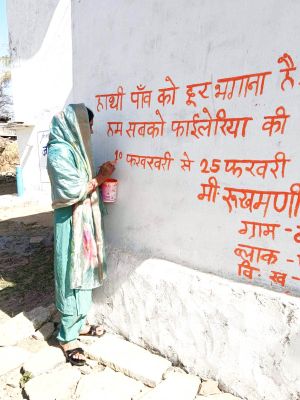 हाथी पाँव को दूर भगाना है
हम सबको फाईलेरिया की
10 फरवरी से 25 फरवरी
मी. रूखमणी
ग्राम -
ब्लाक -
वि. ख